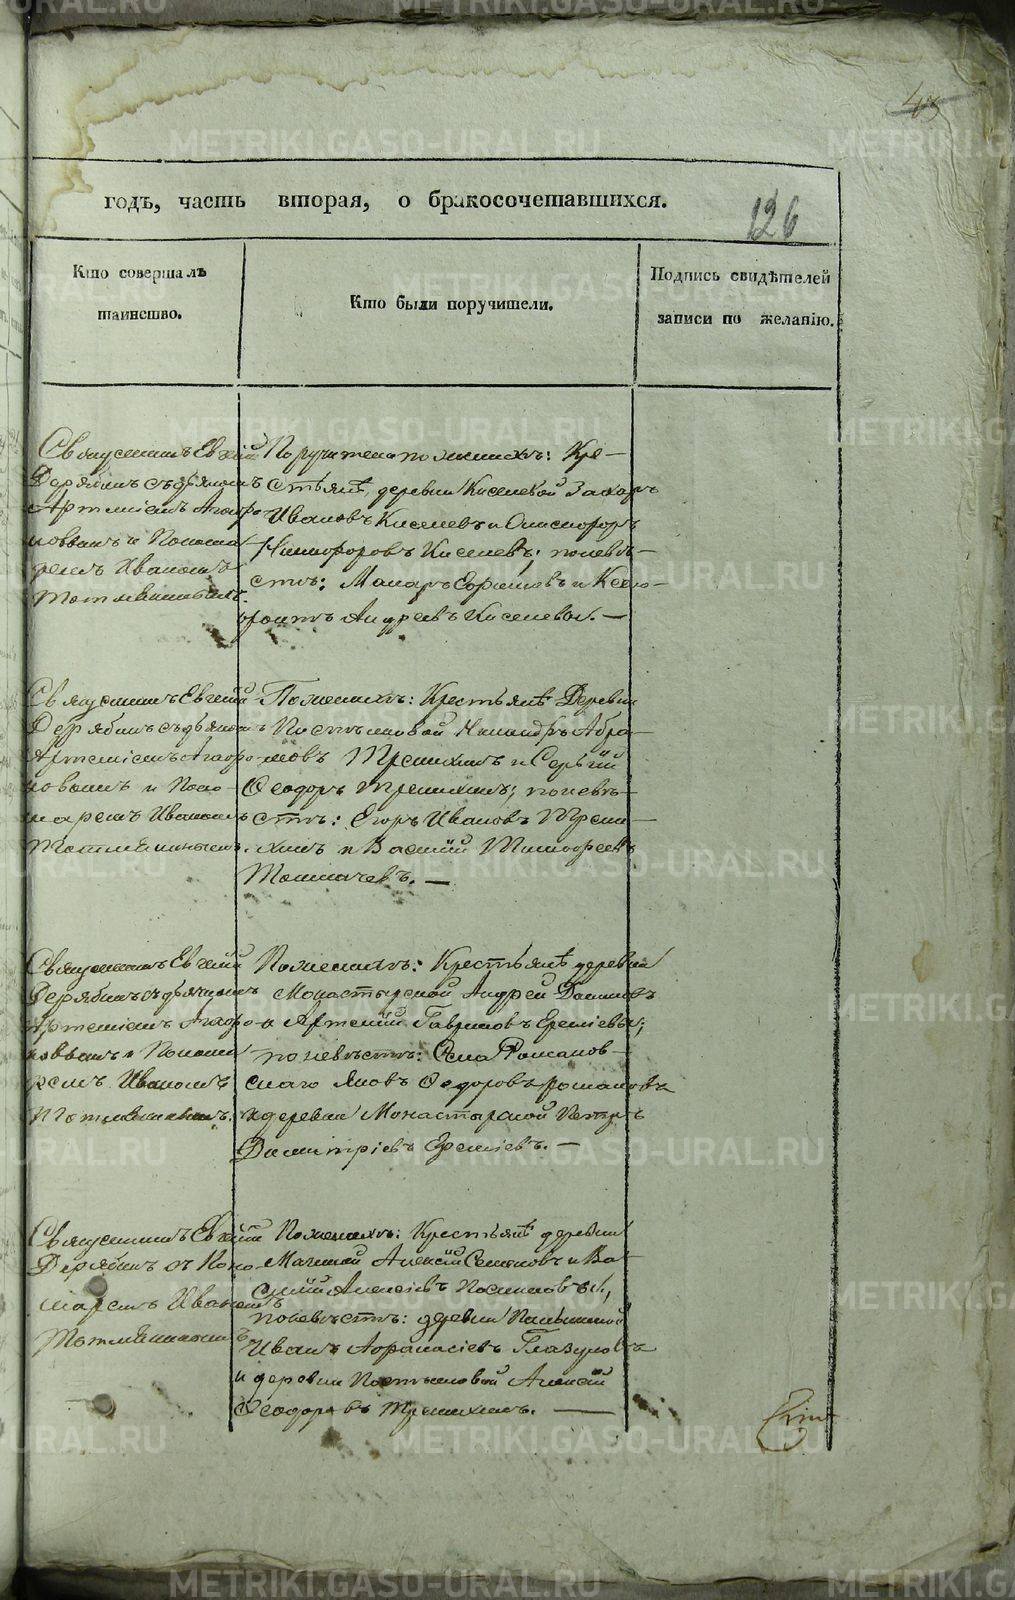 43
годъ, часть вторая, о бракосочетавшихся.
126
Кто совершалъ
таинство.
Кто были поручители.
Подпись свидѣтелей
записи по желанію.
Священникъ Евгеній
Дерябинъ съ дьячкомъ
Артеміемъ Агафо-
новымъ и Понома-
ремъ Иваномъ
Поручители по женихѣ: Кре-
стьянѣ деревни Киселевой Захаръ
Ивановъ Киселевъ и Онисифоръ
Никифоровъ Киселевъ; по невѣ-
стѣ: Макаръ Ефремовъ и Ксено-
фонтъ Андреевъ Киселевы. —
Священникъ Евгеній
Дерябинъ съ дьячкомъ
Артеміемъ Агафо-
новымъ и Поно-
маремъ Иваномъ
По женихѣ: Крестьянѣ Деревни
Постыловой Никандръ Абра-
мовъ Трешихинъ и Сергій
Ѳеодоръ Трешихинъ; по невѣ-
стѣ: Егоръ Ивановъ Треши-
хинъ и Василій Тимофеевъ
Толмачевъ. —
Священникъ Евгеній
Дерябинъ съ дьячкомъ
Артеміемъ Агафо-
новымъ и Понома-
ремъ Иваномъ
По женихѣ: Крестьянѣ деревни
Монастырской Андрей Даниловъ
и Артемій Гавриловъ Еремѣевы;
по невѣстѣ: Села Романов-
скаго Яковъ Ѳедоровъ Романовъ
и деревни Монастырской Петръ
Димитріевъ Еремѣевъ. —
Священникъ Евгеній
Дерябинъ съ Поно-
маремъ Иваномъ
По женихѣ: Крестьянѣ деревни
Алексѣй Семеновъ и Ва-
силій Алексѣевъ
по невѣстѣ: деревни
Иванъ Афанасіевъ Глазуновъ
и деревни Постыловой Алексѣй
Ѳеодоровъ Трешихинъ. —